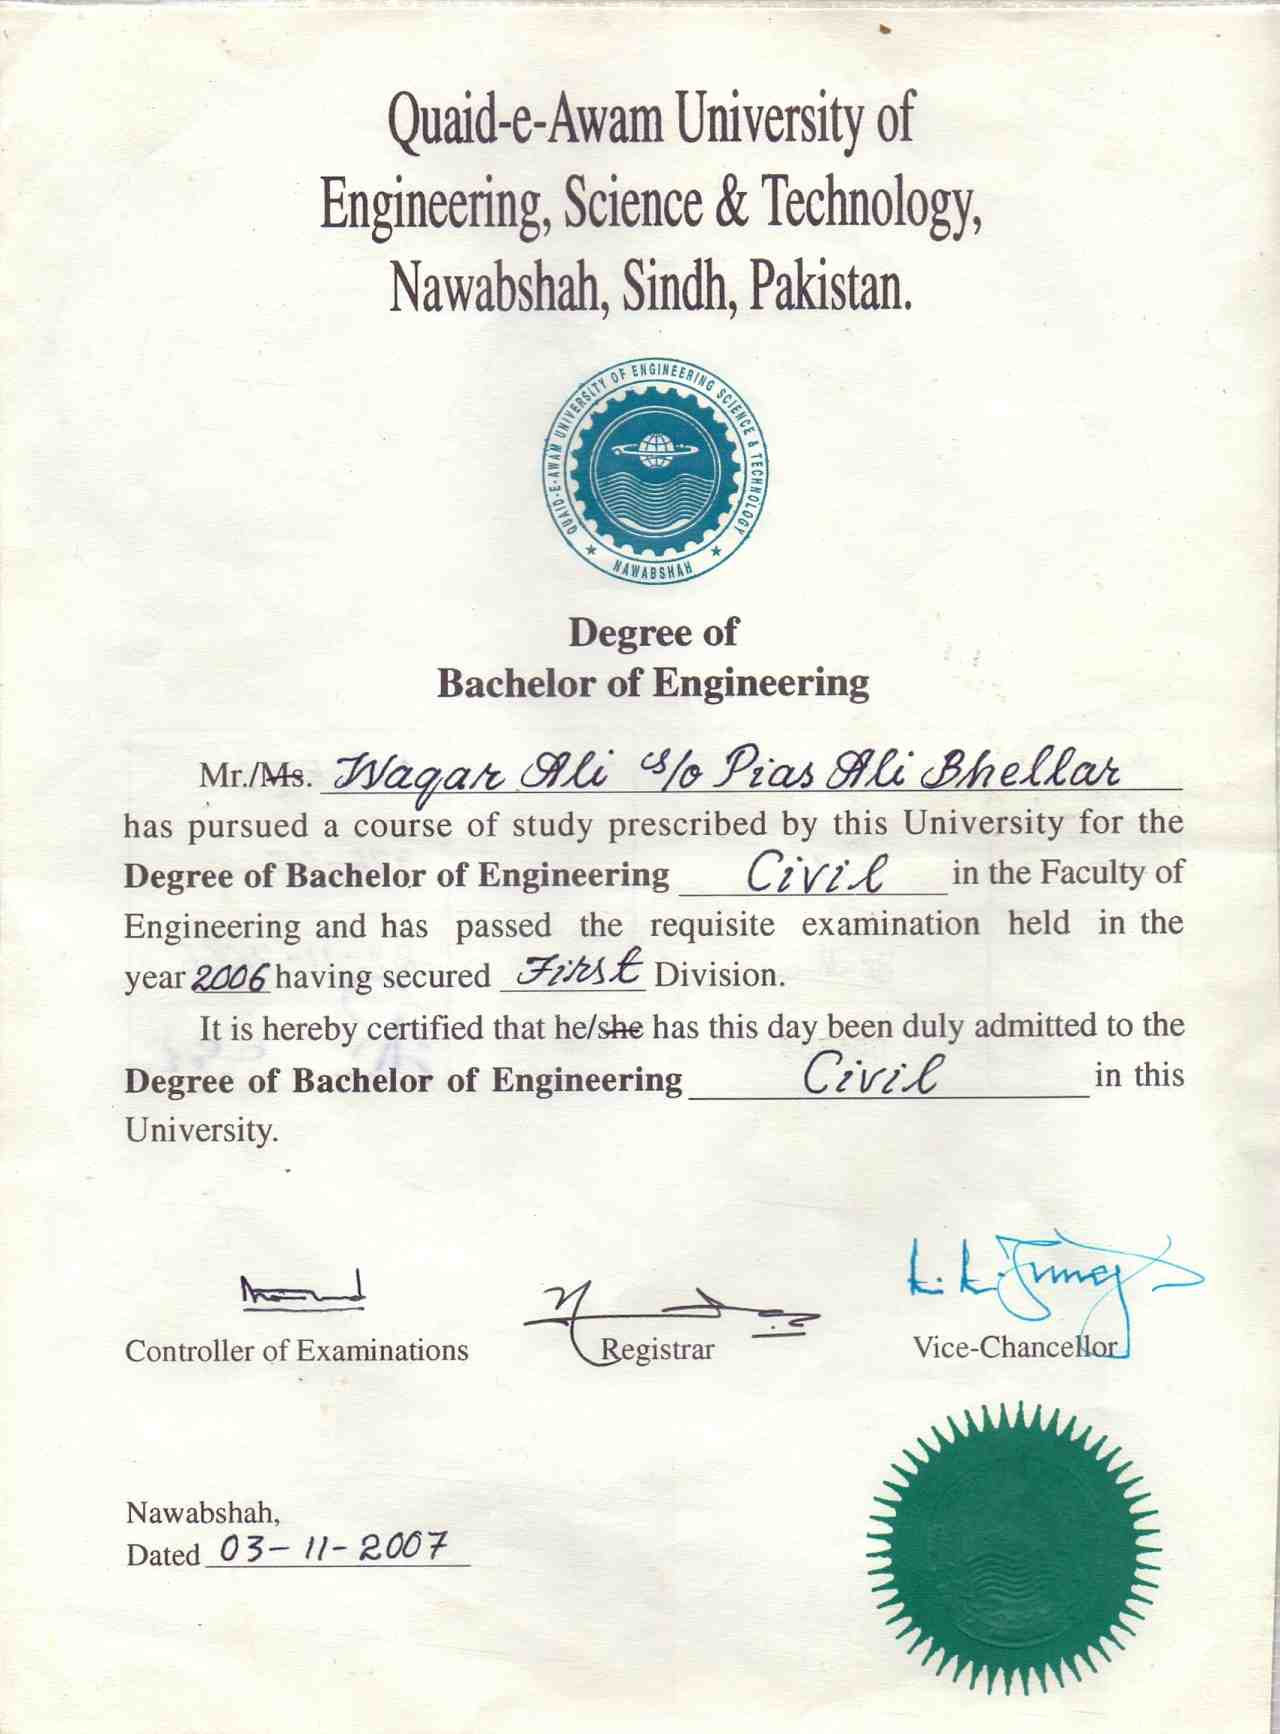 Quaid-e-Awam University of
Engineering, Science & Technology,
Nawabshah, Sindh, Pakistan.
QUAID-E-AWAM UNIVERSITY OF ENGINEERING SCIENCE & TECHNOLOGY
★ NAWABSHAH ★
Degree of
Bachelor of Engineering
Mr./Ms. Waqar Ali s/o Pias Ali Bhellar
has pursued a course of study prescribed by this University for the
Degree of Bachelor of Engineering Civil in the Faculty of
Engineering and has passed the requisite examination held in the
year 2006 having secured First Division.
It is hereby certified that he/she has this day been duly admitted to the
Degree of Bachelor of Engineering Civil in this
University.
Controller of Examinations Registrar Vice-Chancellor
Nawabshah,
Dated 03-11-2007